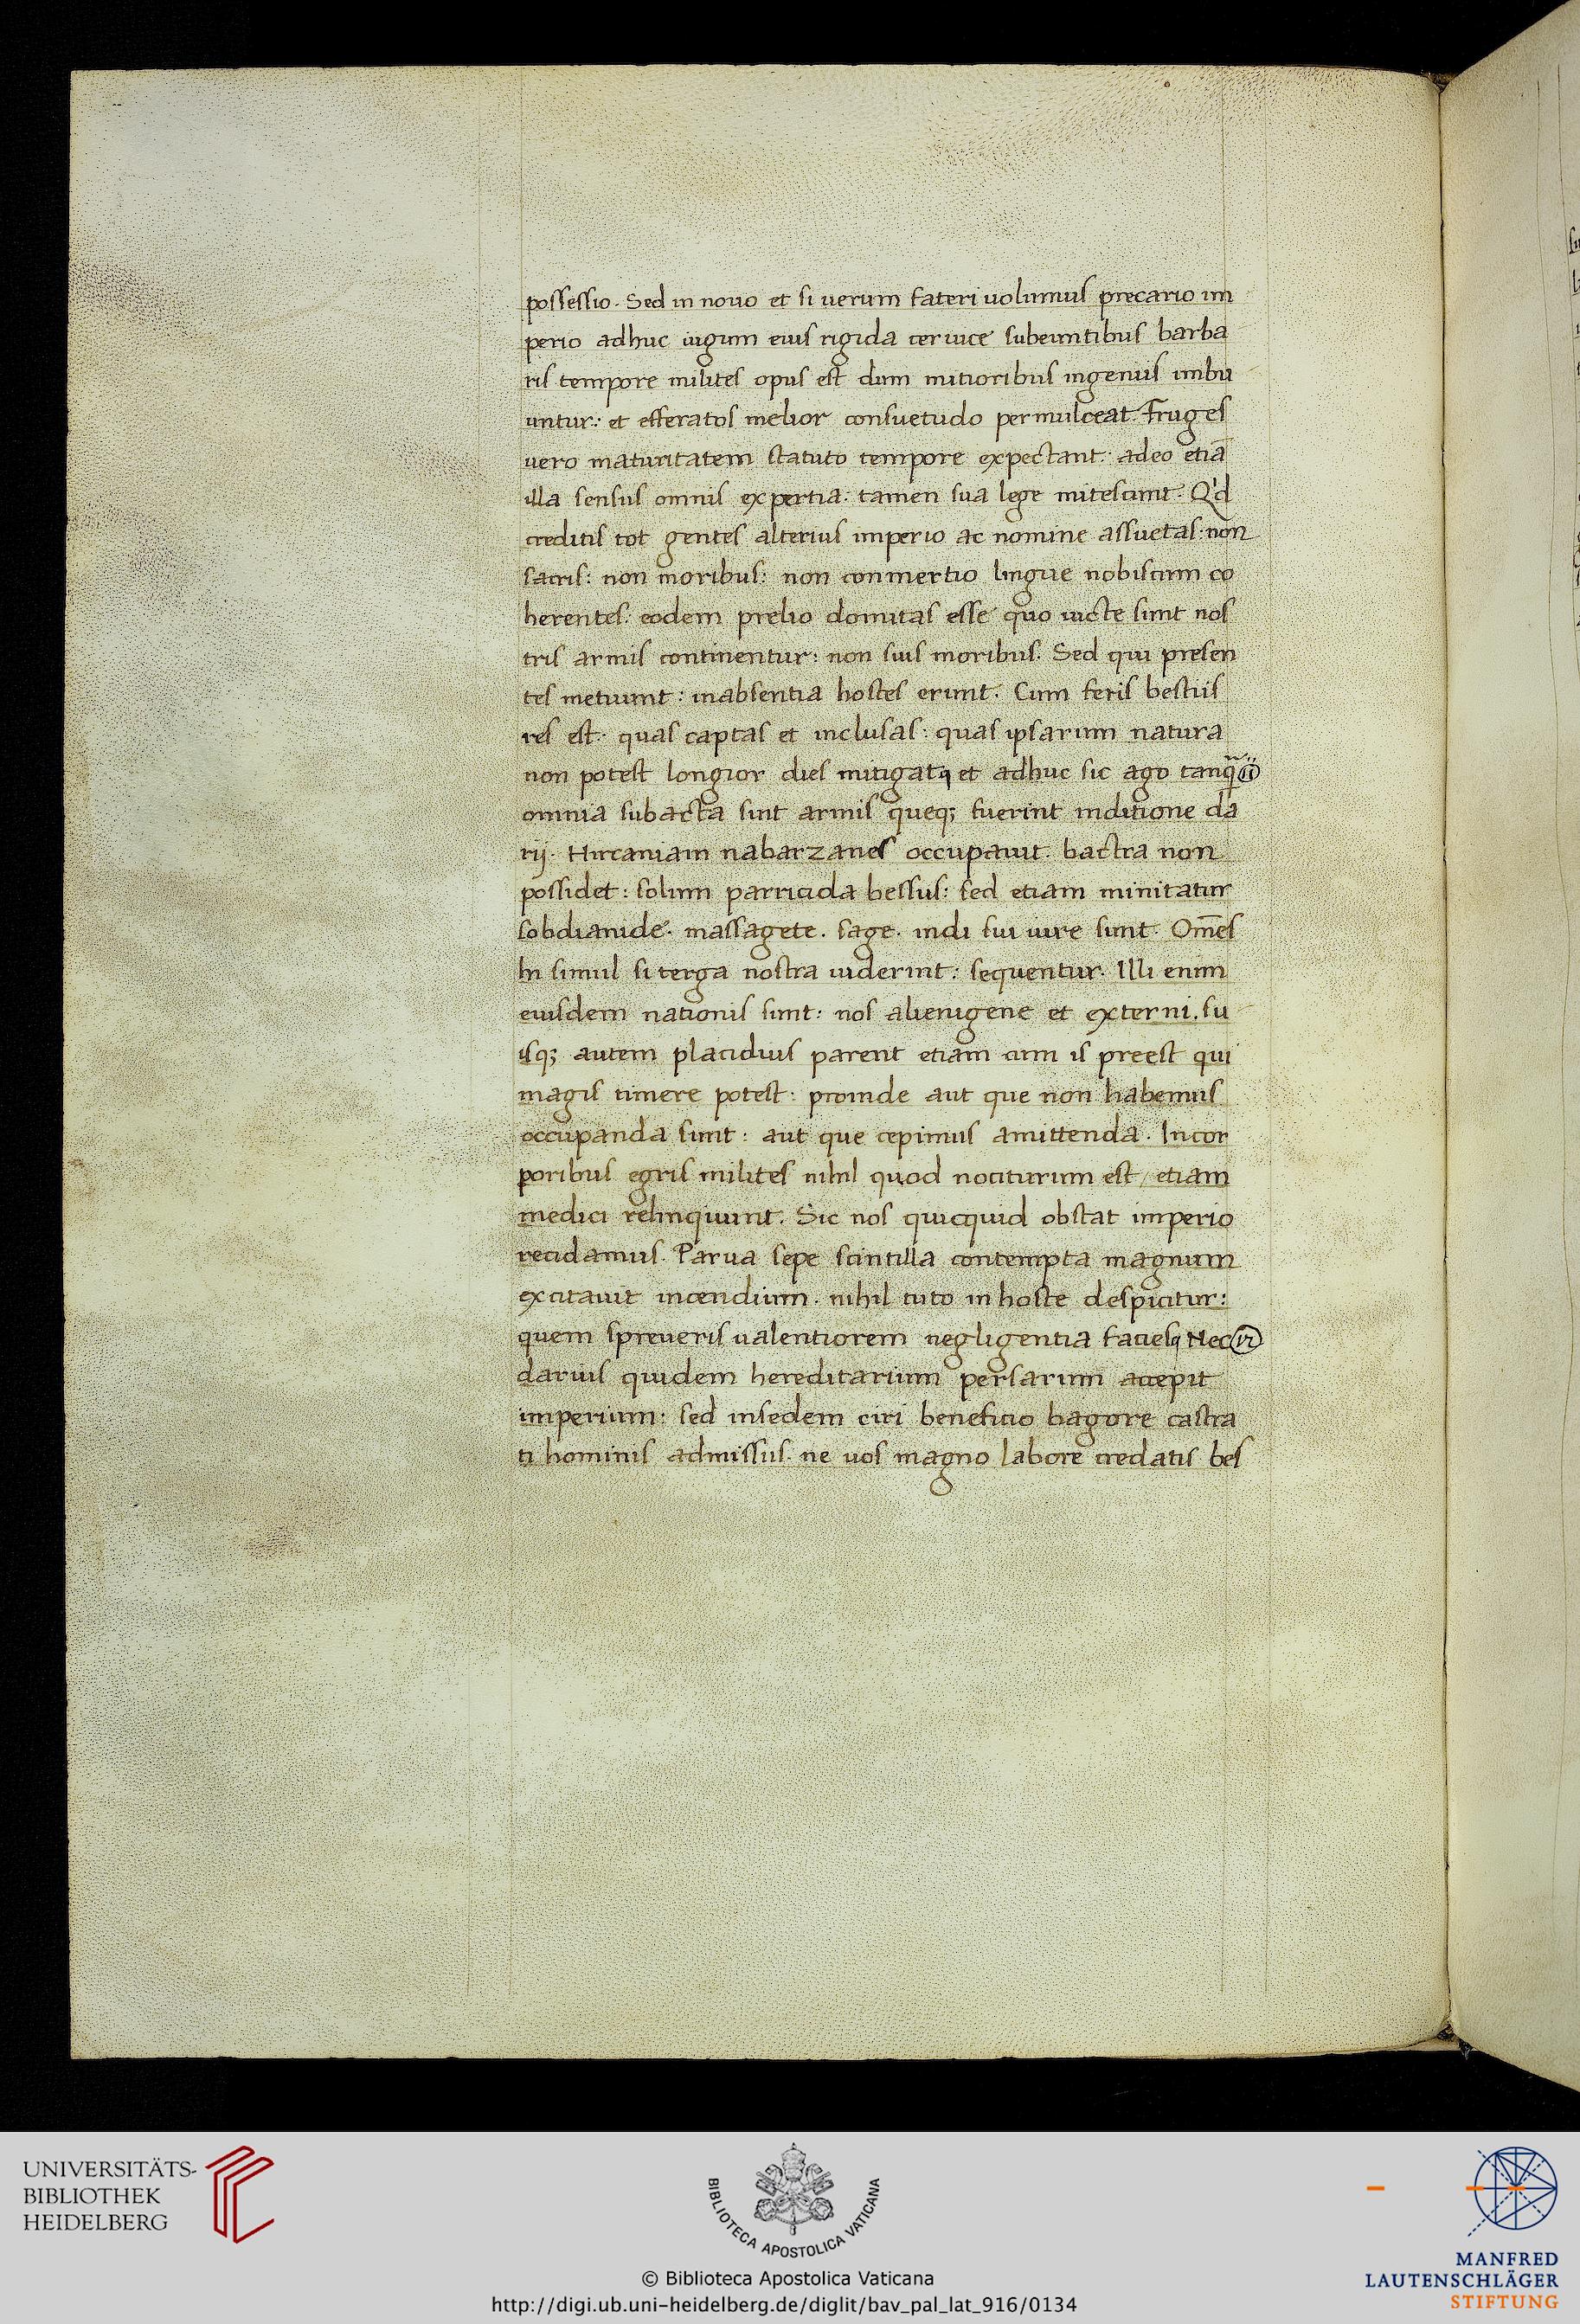 possessio. Sed in nouo et si uerum fateri uolumus precario im
perio adhuc iugum eius rigida ceruice subeuntibus barba
ris tempore milites opus est dum mitioribus ingeniis imbu
untur: et efferatos melior consuetudo permulceat. Fruges
uero maturitatem statuto tempore expectant: adeo etiā
illa sensus omnis expertia: tamen sua lege mitescunt. Q'd
creditis tot gentes alterius imperio ac nomine assuetas: non
sacris: non moribus: non conmertio lingue nobiscum co
herentes: eodem prelio domitas esse quo uicte sunt nos
tris armis continentur: non suis moribus. Sed qui presen
tes metuunt: inabsentia hostes erunt. Cum feris bestiis
res est: quas captas et inclusas: quas ipsarum natura
non potest longior dies mitigat et adhuc sic ago tanq̃ 11
omnia subacta sint armis queq; fuerint inditione da
rij. Hircaniam nabarzanes occupauit. bactra non
possidet: solum parricida bessus: sed etiam minitatur
sobdianide. massagete. sage. indi sui iure sunt. Om̄es
hi simul si terga nostra uiderint: sequentur. Illi enim
eiusdem nationis sunt: nos alienigene et externi. su
isq; autem placidius parent etiam cum is preest qui
magis timere potest: proinde aut que non habemus
occupanda sunt: aut que cepimus amittenda. Incor
poribus egris milites nihil quod nociturum est / etiam
medici relinquunt. Sic nos quicquid obstat imperio
recidamus. Parua sepe scintilla contempta magnum
excitauit incendium. nihil tuto in hoste despicitur:
quem spreueris ualentiorem negligentia facies Nec 12
darius quidem hereditarium persarum accepit
imperium: sed insedem ciri beneficio bagore castra
ti hominis admissus. ne uos magno labore credatis bes
UNIVERSITÄTS-
BIBLIOTHEK
HEIDELBERG
BIBLIOTECA APOSTOLICA VATICANA
© Biblioteca Apostolica Vaticana
http://digi.ub.uni-heidelberg.de/diglit/bav_pal_lat_916/0134
MANFRED
LAUTENSCHLÄGER
STIFTUNG